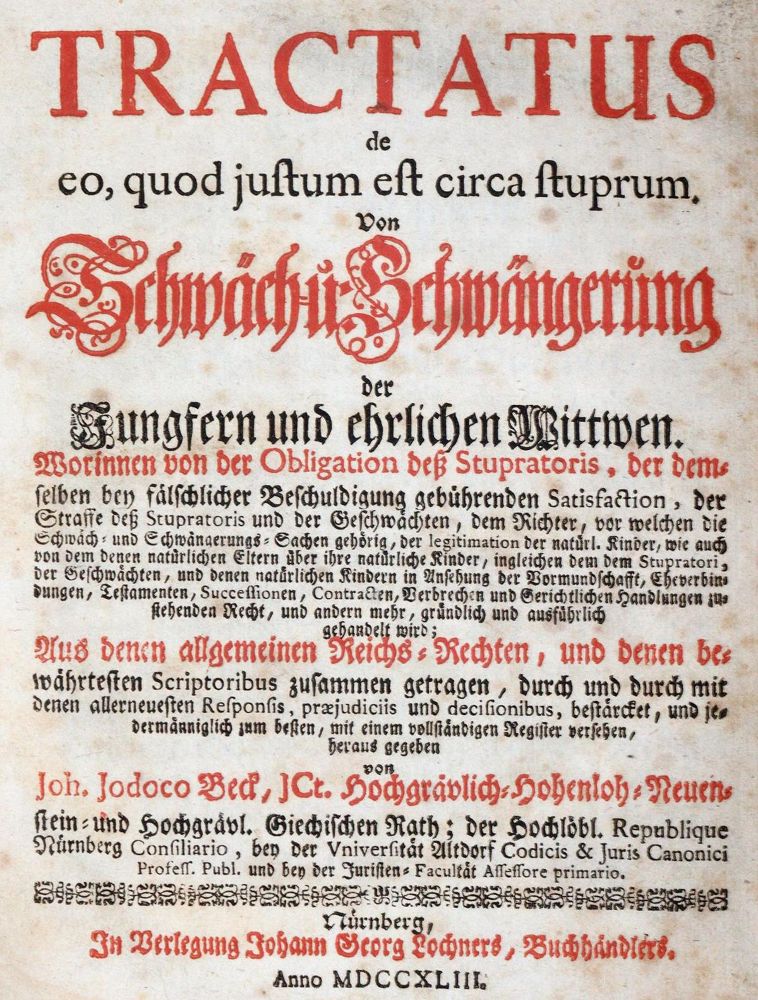 TRACTATUS
de
eo, quod juſtum eſt circa ſtuprum.
Von
Schwäch- u. Schwängerung
der
Jungfern und ehrlichen Wittwen.
Worinnen von der Obligation deß Stupratoris, der dem-
ſelben bey fälſchlicher Beſchuldigung gebührenden Satisfaction, der
Straffe deß Stupratoris und der Geſchwächten, dem Richter, vor welchen die
Schwäch- und Schwängerungs-Sachen gehörig, der legitimation der natürl. Kinder, wie auch
von dem denen natürlichen Eltern über ihre natürliche Kinder, ingleichen dem dem Stupratori,
der Geſchwächten, und denen natürlichen Kindern in Anſehung der Vormundſchafft, Eheverbin-
dungen, Teſtamenten, Succeſſionen, Contracten, Verbrechen und Gerichtlichen Handlungen zu-
ſtehenden Recht, und andern mehr, gründlich und ausführlich
gehandelt wird;
Aus denen allgemeinen Reichs-Rechten, und denen be-
währteſten Scriptoribus zuſammen getragen, durch und durch mit
denen allerneueſten Reſponſis, præjudiciis und deciſionibus, beſtärcket, und je-
dermänniglich zum beſten, mit einem vollſtändigen Regiſter verſehen,
heraus gegeben
von
Joh. Jodoco Beck, JCt. Hochgrävlich-Hohenloh-Neuen-
ſtein- und Hochgrävl. Giechiſchen Rath; der Hochlöbl. Republique
Nürnberg Conſiliario, bey der Vniverſität Altdorf Codicis & Juris Canonici
Profeſſ. Publ. und bey der Juriſten-Facultät Aſſeſſore primario.
Nürnberg,
In Verlegung Johann Georg Lochners, Buchhändlers.
Anno MDCCXLIII.